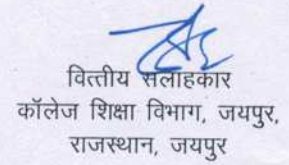 वित्तीय सलाहकार
कॉलेज शिक्षा विभाग, जयपुर,
राजस्थान, जयपुर